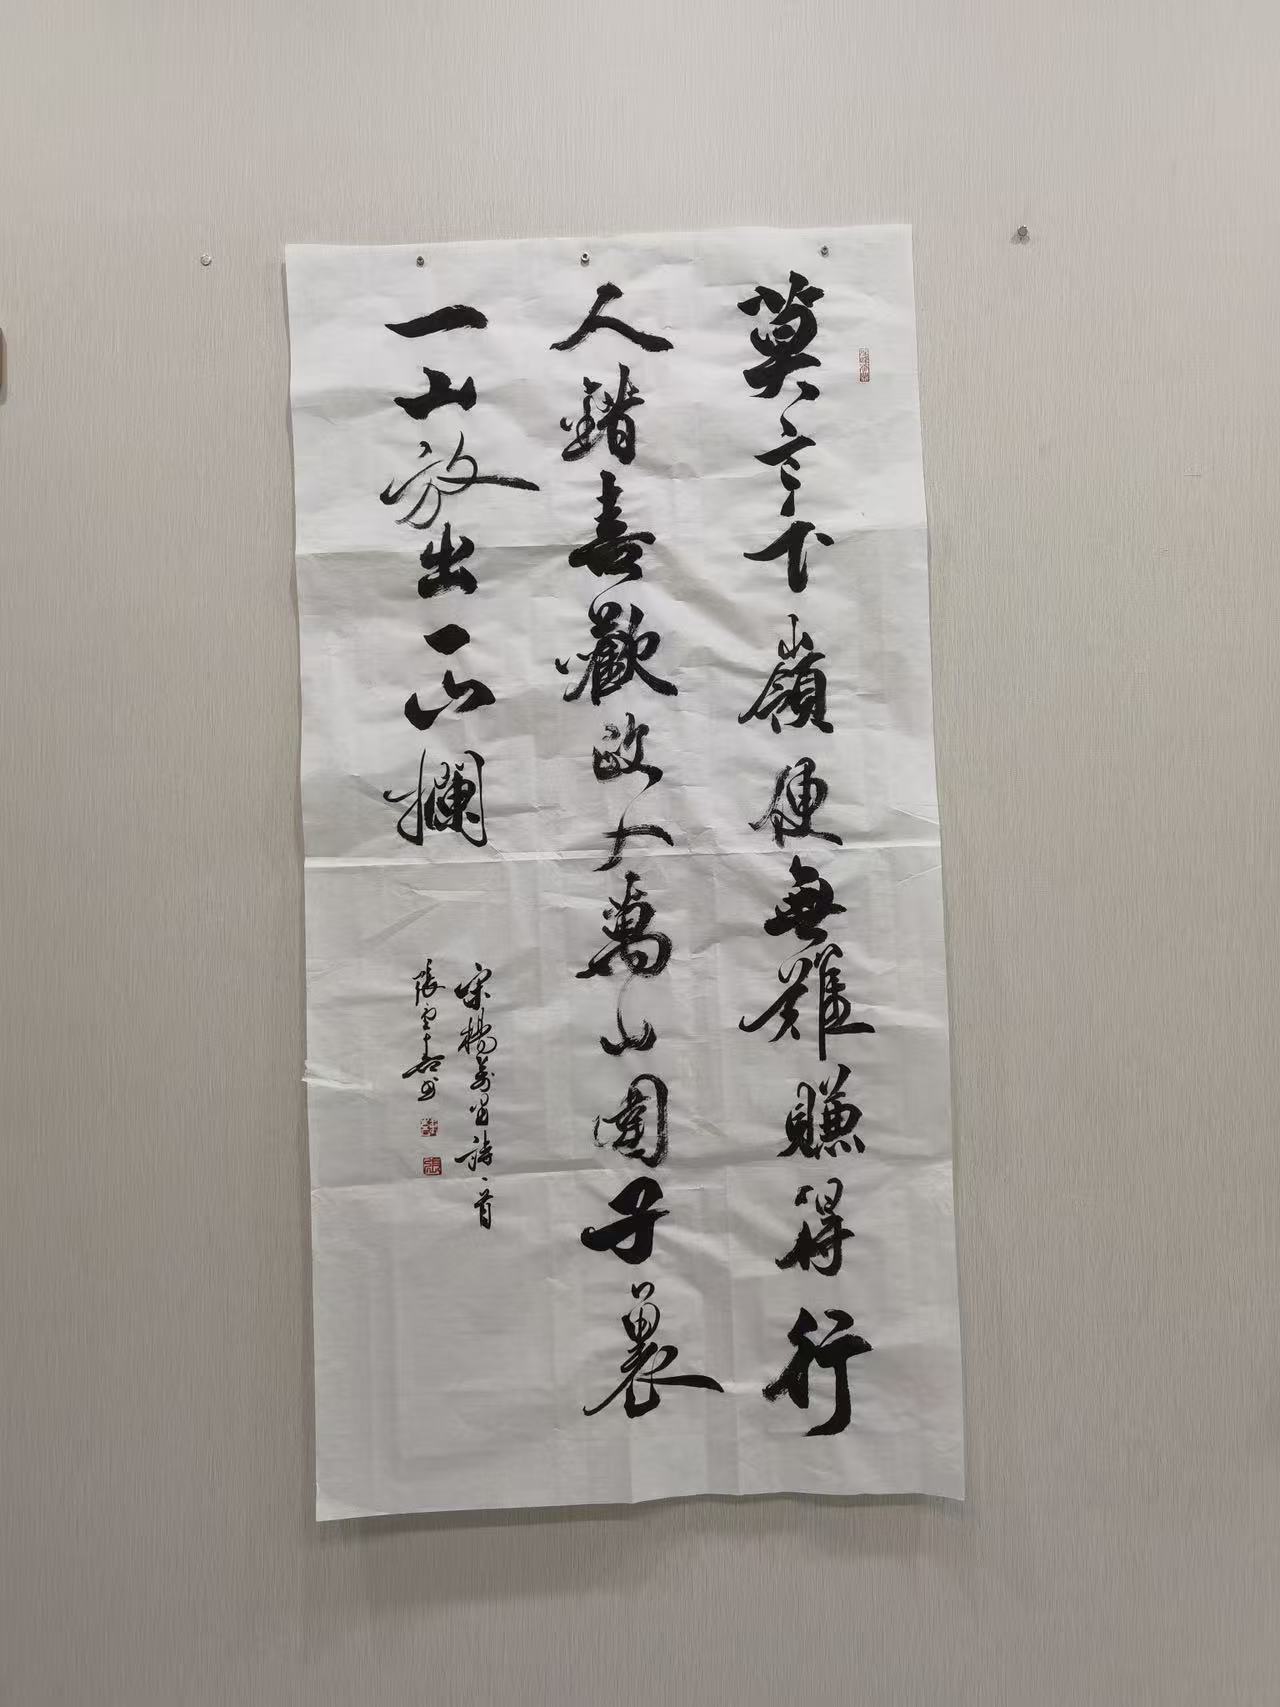 莫言下嶺便無難賺得行
人錯喜歡政入萬山圍子裏
一山放出一山攔
宋楊萬里詩一首
張雲